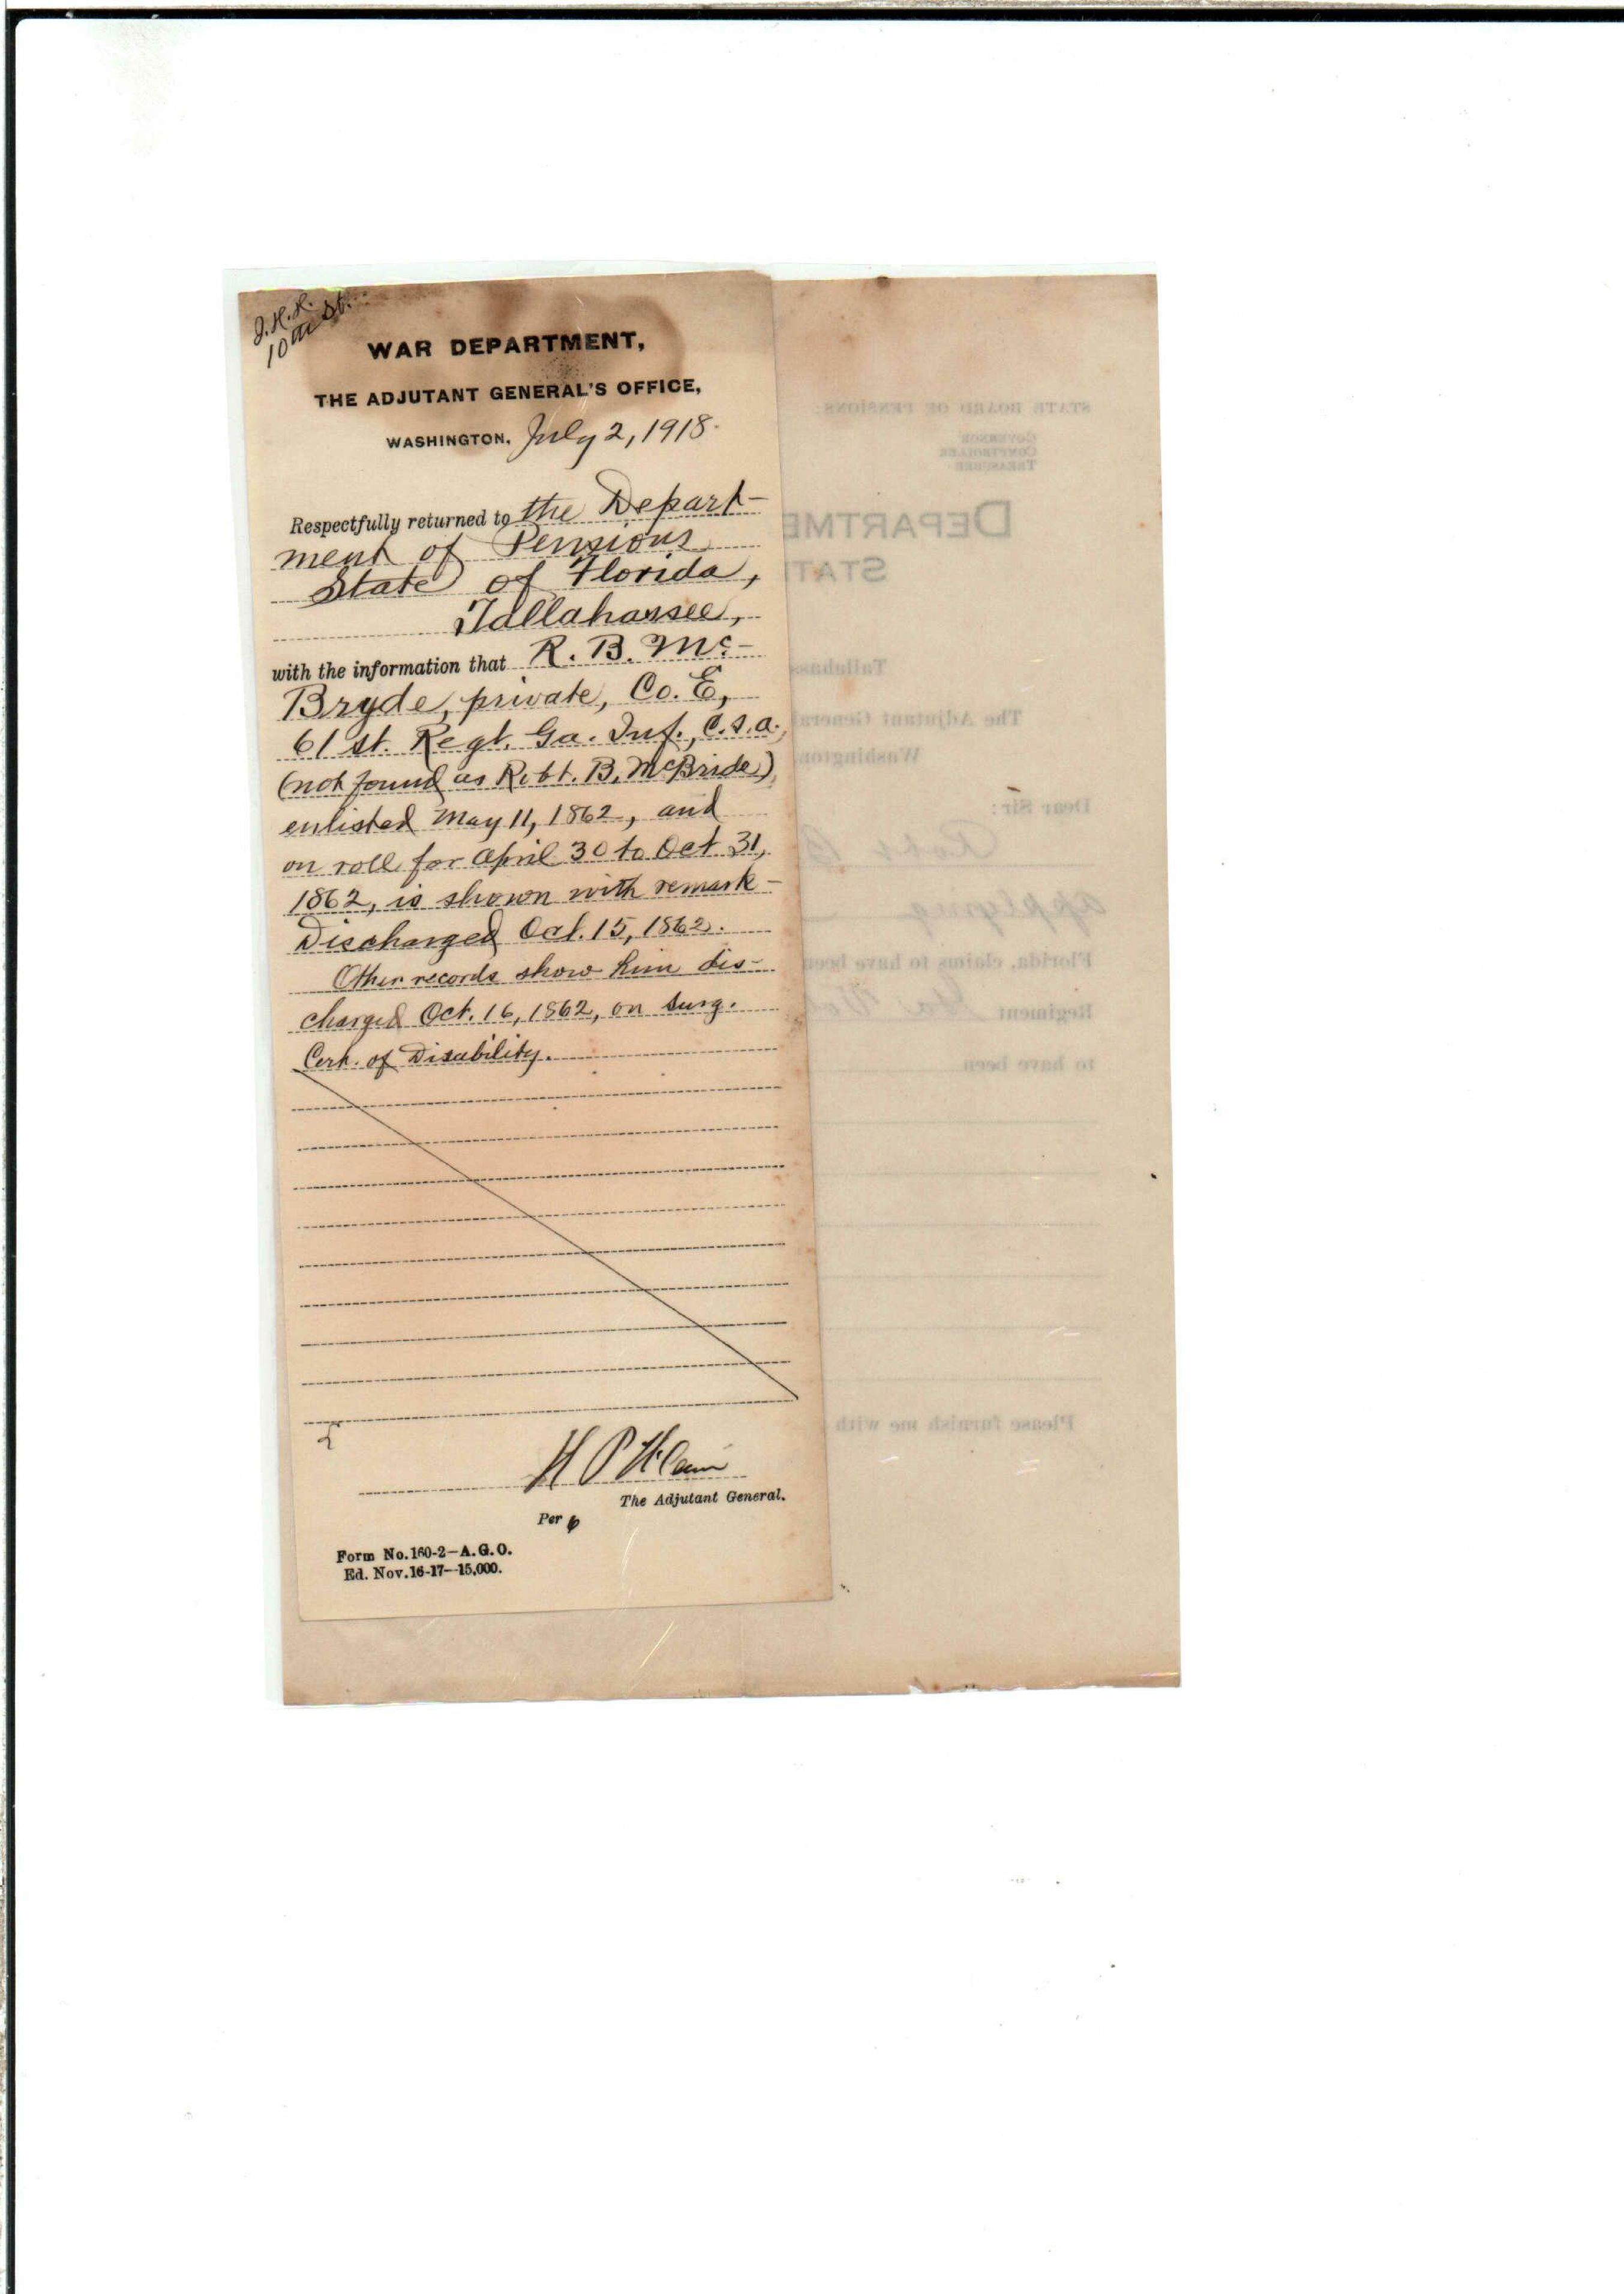 J.H.R.
10th St.
WAR DEPARTMENT,
THE ADJUTANT GENERAL'S OFFICE,
WASHINGTON, July 2, 1918.
Respectfully returned to the Depart-
ment of Pensions
State of Florida,
Tallahassee,
with the information that R. B. Mc-
Bryde, private, Co. E,
61st. Regt. Ga. Inf., C.S.A.,
(not found as Robt. B. McBride),
enlisted May 11, 1862, and
on roll for April 30 to Oct 31,
1862, is shown with remark -
Discharged Oct. 15, 1862.
Other records show him dis-
charged Oct. 16, 1862, on Surg.
Cert. of Disability.
The Adjutant General.
Per
Form No. 160-2—A.G.O.
Ed. Nov. 16-17—15,000.
STATE BOARD OF PENSIONS:
GOVERNOR
COMPTROLLER
TREASURER
DEPARTME
STAT
Tallahas
The Adjutant General
Washington
Dear Sir:
Robt B
applying
Florida, claims to have been
Regiment Ga.
to have been
Please furnish me with